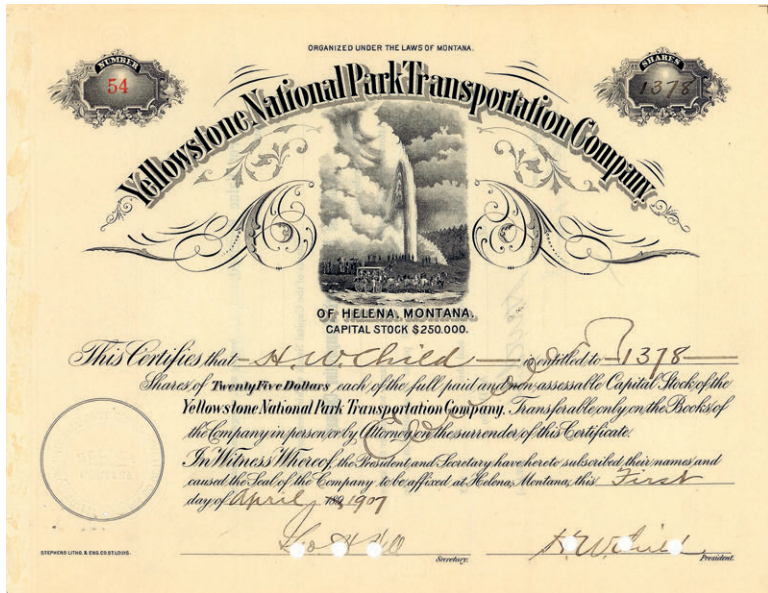 ORGANIZED UNDER THE LAWS OF MONTANA.
NUMBER
54
SHARES
1378
Yellowstone National Park Transportation Company
OF HELENA, MONTANA.
CAPITAL STOCK $250.000.
This Certifies that H. W. Child is entitled to 1378
Shares of Twenty Five Dollars each of the full paid and non-assessable Capital Stock of the
Yellowstone National Park Transportation Company, Transferable only on the Books of
the Company in person or by Attorney on the surrender of this Certificate.
In Witness Whereof, the President and Secretary have hereto subscribed their names and
caused the Seal of the Company to be affixed at Helena, Montana, this First
day of April 189 1907
H. W. Child
Secretary.
President.
STEPHENS LITHO. & ENG. CO ST. LOUIS.